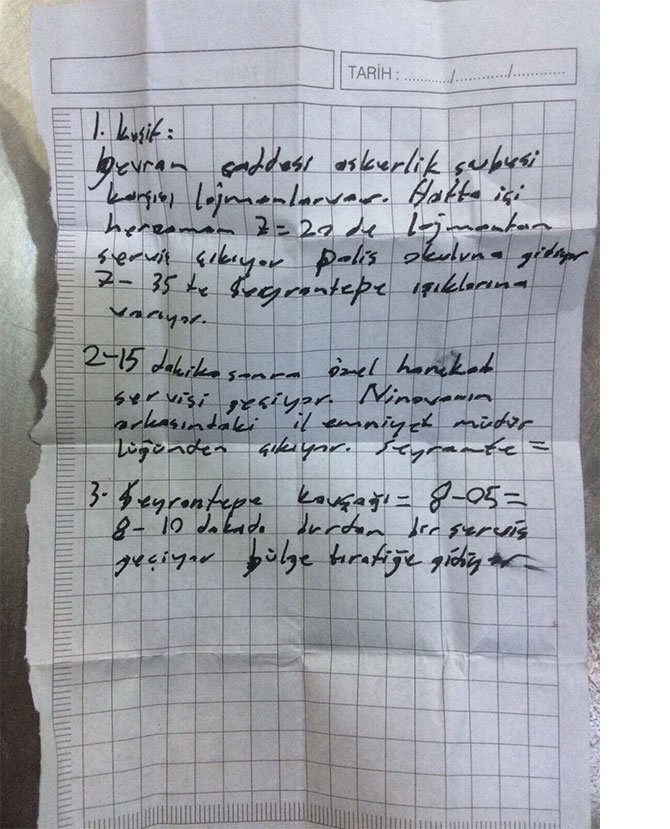 TARİH : ............/............/............
1. keşif:
Devran caddesi askerlik şubesi
karşısı lojmanlarvar. Hafta içi
herzaman 7=20 de lojmantan
servis çıkıyor polis okuluna gidiyor
7-35 te Seyrantepe ışıklarına
varıyor.
2-15 dakika sonra özel harekat
servisi geçiyor. Ninovanın
arkasındaki il emniyet müdür
lüğünden çıkıyor. Seyrante =
3. Seyrantepe kavşağı = 8-05=
8-10 dakada burdan bir servis
geçiyor bölge tıratiğe gidiyor